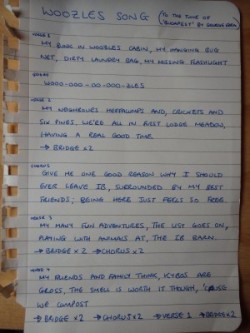 WOOZLES SONG
VERSE 1
MY BUNK IN WOOZLES CABIN, MY HANGING BUG
NET, DIRTY LAUNDRY BAG, MY MISSING FLASHLIGHT
WOOO-OOO-OO-OOO-ZLES
VERSE 2
MY NEIGHBOURS HEFFALUMPS AND, CRICKETS AND
SIX PINES, WE'RE ALL IN FIRST LODGE MEADOW,
HAVING A REAL GOOD TIME
→ BRIDGE x2
CHORUS
GIVE ME ONE GOOD REASON WHY I SHOULD
EVER LEAVE IB, SURROUNDED BY MY BEST
FRIENDS, BEING HERE JUST FEELS SO FREE
VERSE 3
MY MANY FUN ADVENTURES, THE LIST GOES ON,
PLAYING WITH ANIMALS AT, THE IB BARN
→ BRIDGE x2 → CHORUS x2
VERSE 4
MY FRIENDS AND FAMILY THINK, KYBOS ARE
GROSS, THE SMELL IS WORTH IT THOUGH,
WE COMPOST
→ BRIDGE x2 → CHORUS x2 → VERSE 1 → BRIDGE x2